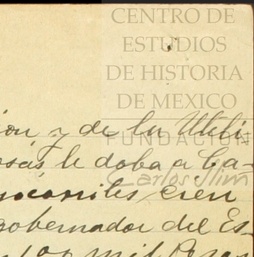 CENTRO DE
ESTUDIOS
DE HISTORIA
DE MEXICO
FUNDACIÓN
Carlos Slim
ion y de la Utili
le daba a Ca-
cien
gobernador del Es-
mil Pesos